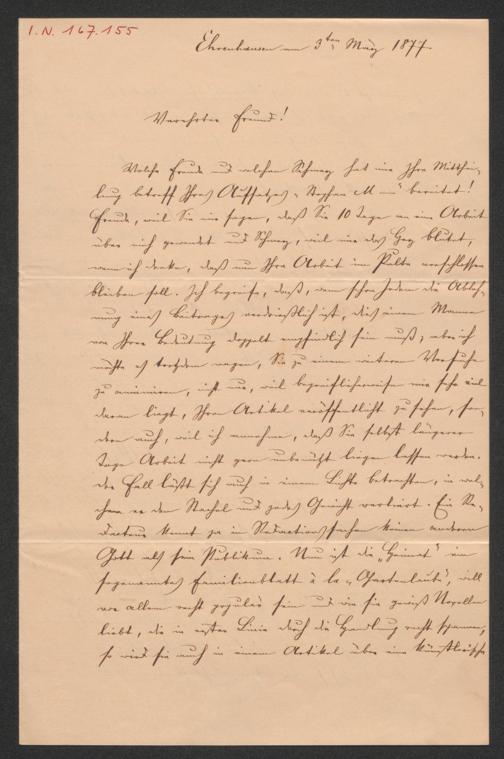 I. N. 167.155
Ehrenhausen am 3ten März 1877.
Verehrter Freund!
Welche Freude und welchen Schmerz hat mir Ihre Mitthei-
lung betreff Ihres Aufsatzes „Stephan M" bereitet!
Freude, weil Sie mir sagen, daß Sie 10 Tage an eine Arbeit
über mich gewendet und Schmerz, weil mir das Herz blutet,
wenn ich denke, daß nun Ihre Arbeit im Pulte verschlossen
bleiben soll. Ich begreife, daß, wenn schon Jedem die Ableh-
nung eines Beitrages verdrießlich ist, dies einem Manne
von Ihrer Bedeutung doppelt empfindlich sein muß, aber ich
möchte es trotzdem wagen, Sie zu einem weiteren Versuche
zu animiren, nicht nur, weil begreiflicherweise mir sehr viel
daran liegt, Ihren Artikel veröffentlicht zu sehen, son-
dern auch, weil ich annehme, daß Sie selbst längerer
Tage Arbeit nicht gern unbenützt liegen lassen werden.
Der Fall läßt sich auch in einem Lichte betrachten, in wel-
chem er den Stachel und jedes Gewicht verliert. Ein Re-
dacteur kennt ja in Redactionssachen keinen anderen
Gott als sein Publikum. Nun ist die „Heimat" ein
sogenanntes Familienblatt à la „Gartenlaube", will
vor allem recht populär sein und wie sie gewiß Novellen
liebt, die in erster Linie durch die Handlung recht spannen,
so wird sie auch in einem Artikel über eine künstlerische